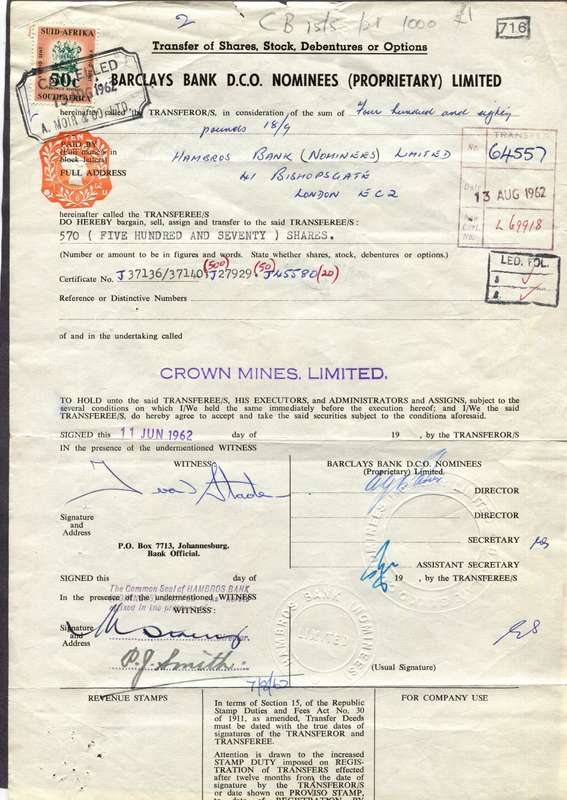 2
CB 15/5 1000 £1
716
Transfer of Shares, Stock, Debentures or Options
SUID-AFRIKA
50c
SOUTH AFRICA
CANCELLED
1962
A. MOIR & CO. LTD.
BARCLAYS BANK D.C.O. NOMINEES (PROPRIETARY) LIMITED
hereinafter called the TRANSFEROR/S, in consideration of the sum of Four hundred and eighty
pounds 18/9
TEN
PAID BY
(Full names in
block letters)
FULL ADDRESS
HAMBROS BANK (NOMINEES) LIMITED
41 BISHOPSGATE
LONDON EC2
TRANSFER
No. 64557
Date 13 AUG 1962
New Cert. Nos. L 69918
hereinafter called the TRANSFEREE/S
DO HEREBY bargain, sell, assign and transfer to the said TRANSFEREE/S :
570 ( FIVE HUNDRED AND SEVENTY ) SHARES.
(Number or amount to be in figures and words. State whether shares, stock, debentures or options.)
LED. FOL.
S
B.
(500) (50)
Certificate No. J37136/37140 J27929 J45580 (20)
Reference or Distinctive Numbers
of and in the undertaking called
CROWN MINES, LIMITED.
TO HOLD unto the said TRANSFEREE/S, HIS EXECUTORS, and ADMINISTRATORS and ASSIGNS, subject to the
several conditions on which I/We held the same immediately before the execution hereof; and I/We the said
TRANSFEREE/S, do hereby agree to accept and take the said securities subject to the conditions aforesaid.
SIGNED this 11 JUN 1962 day of 19 , by the TRANSFEROR/S
IN the presence of the undermentioned WITNESS
WITNESS:
BARCLAYS BANK D.C.O. NOMINEES
(Proprietary) Limited.
DIRECTOR
DIRECTOR
Signature
and
Address
SECRETARY
P.O. Box 7713, Johannesburg.
Bank Official.
ASSISTANT SECRETARY
SIGNED this day of 19 , by the TRANSFEREE/S
The Common Seal of HAMBROS BANK
In the presence of the undermentioned WITNESS
WITNESS:
HAMBROS BANK NOMINEES
LIMITED
Signature
and
Address
P.J. Smith.
(Usual Signature)
7/8/62
REVENUE STAMPS
FOR COMPANY USE
In terms of Section 15, of the Republic
Stamp Duties and Fees Act No. 30
of 1911, as amended, Transfer Deeds
must be dated with the true dates of
signatures of the TRANSFEROR and
TRANSFEREE.
Attention is drawn to the increased
STAMP DUTY imposed on REGIS-
TRATION of TRANSFERS effected
after twelve months from the date of
signature by the TRANSFEROR/S
or date shown on PROVISO STAMP,